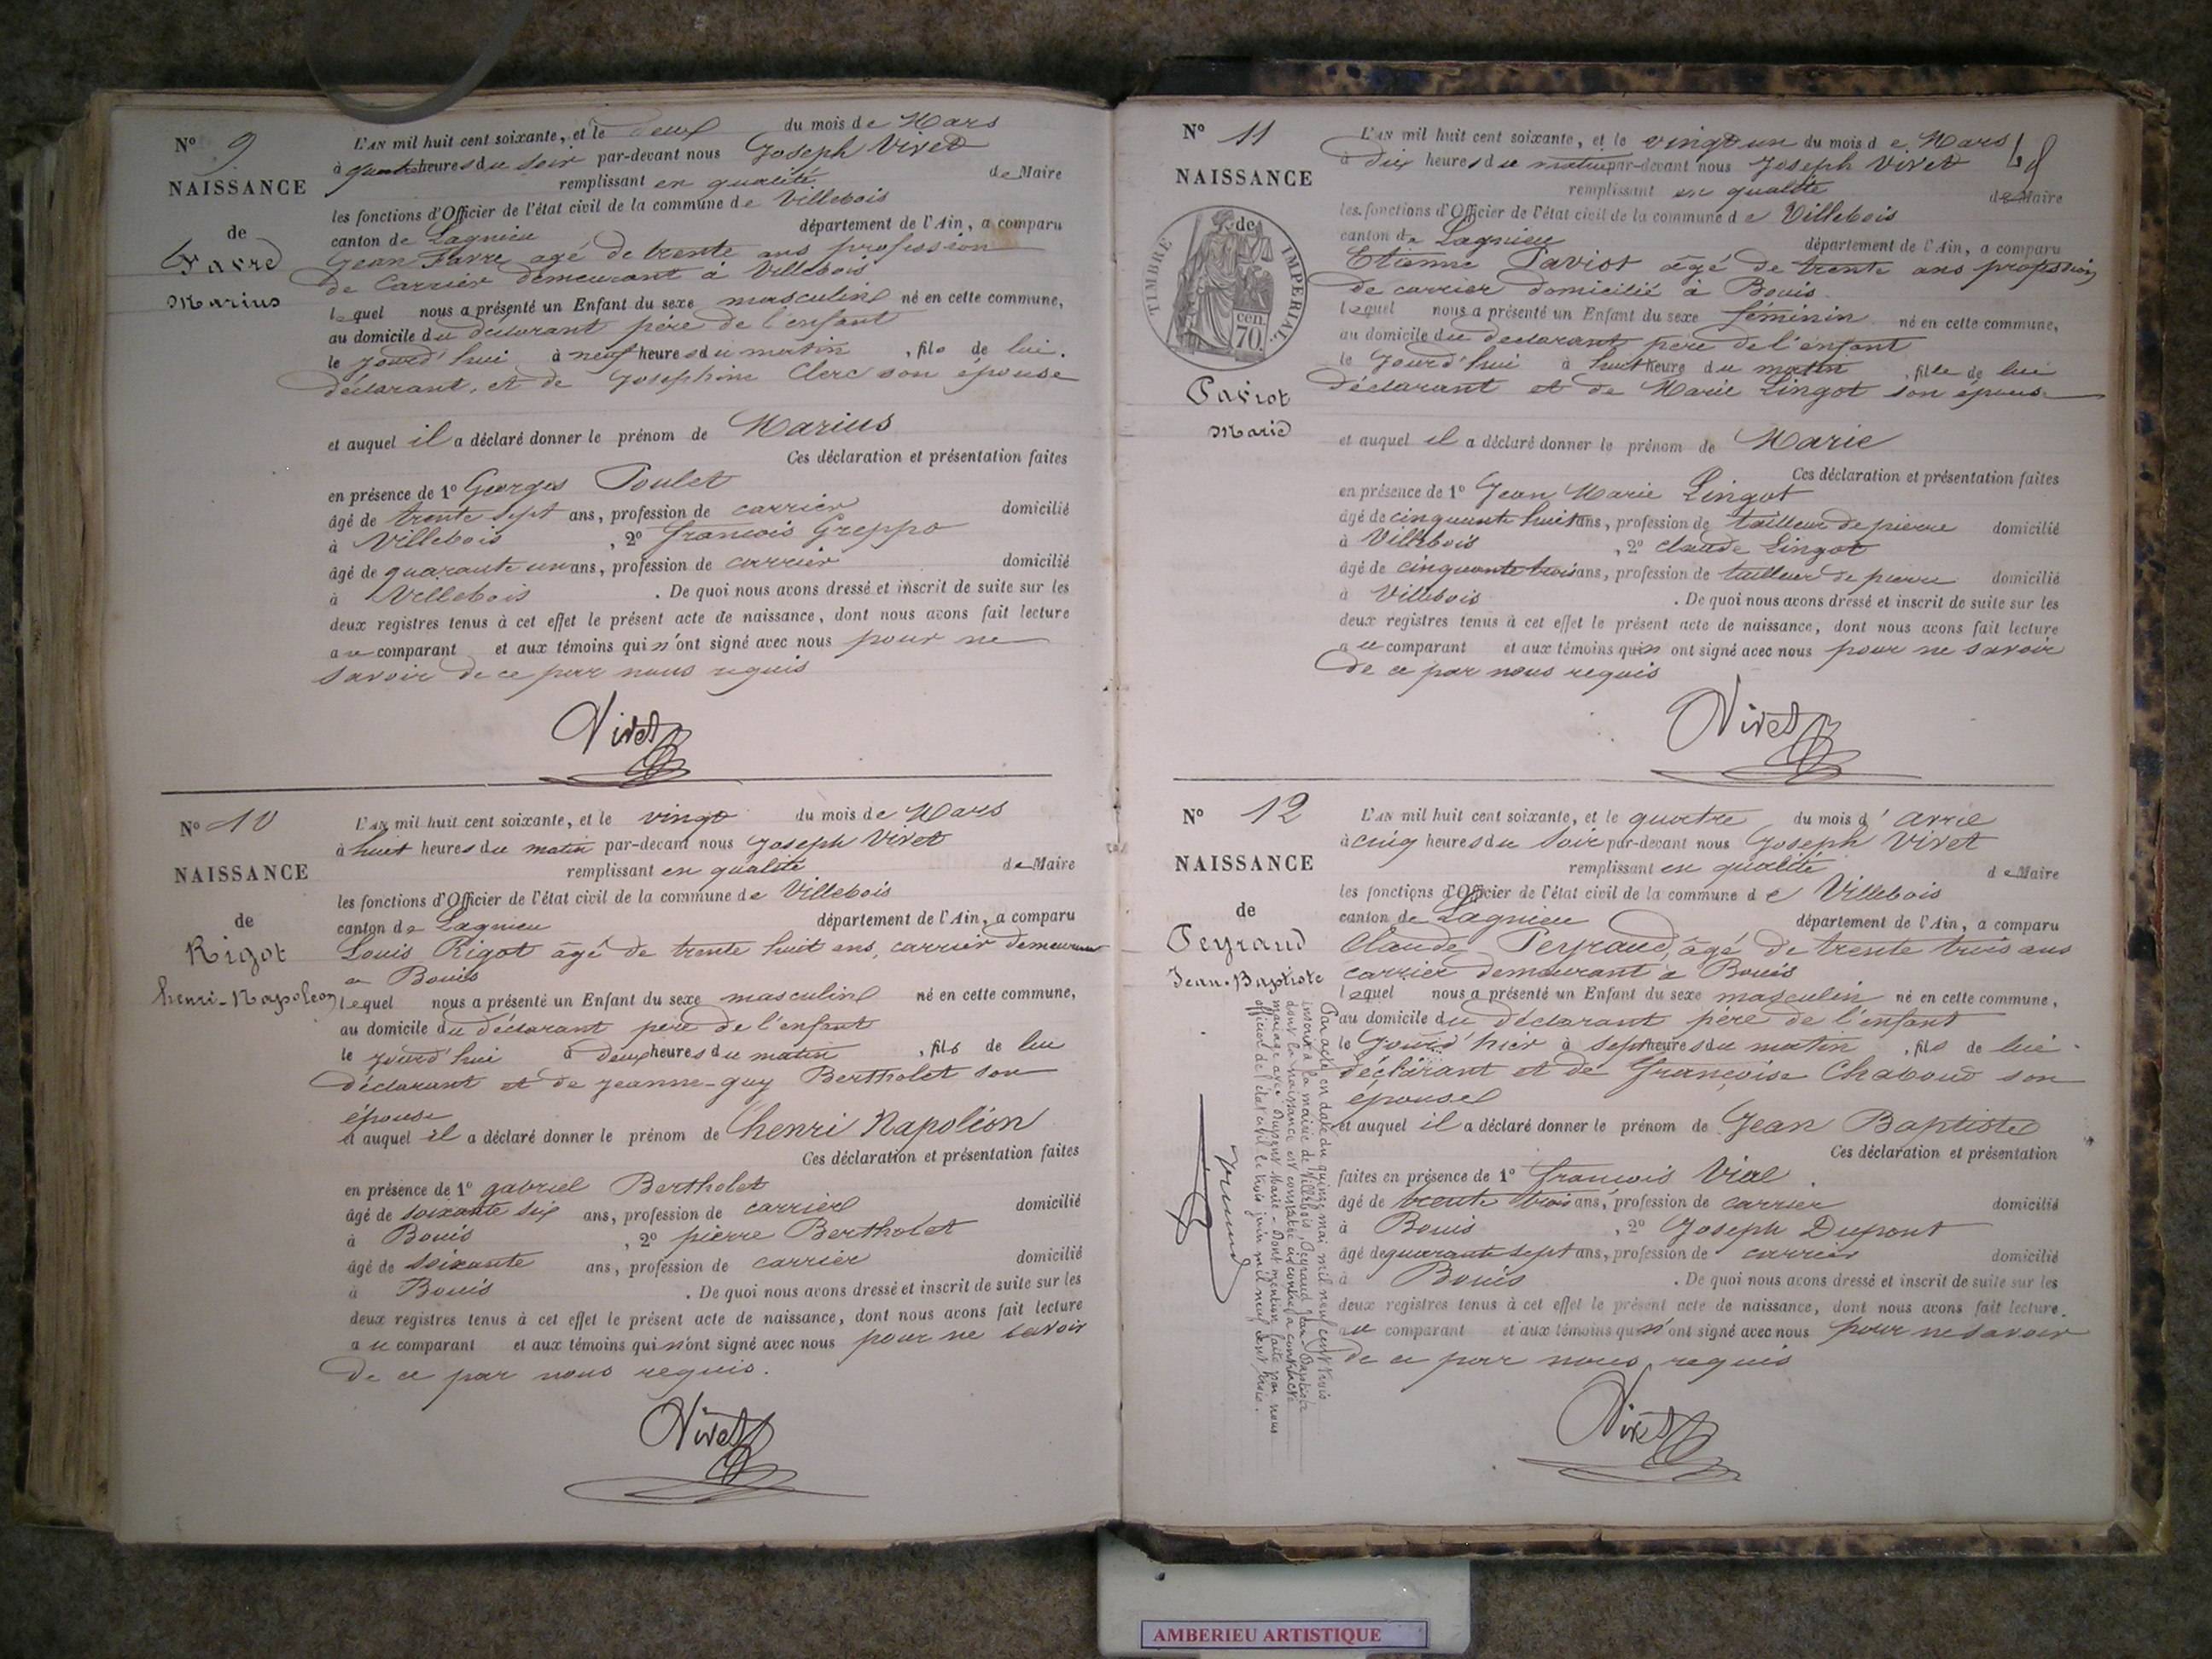 N° 9
NAISSANCE
de
Favre
Marius
L'AN mil huit cent soixante, et le deux du mois de Mars
à quatre heures du soir par-devant nous Joseph Vivet
remplissant en qualité de Maire
les fonctions d'Officier de l'état civil de la commune de Villebois
canton de Lagnieu département de l'Ain, a comparu
Jean Favre agé de trente ans profession
de Carrier demeurant à Villebois
lequel nous a présenté un Enfant du sexe masculin né en cette commune,
au domicile du déclarant père de l'enfant
le jourd'hui à neuf heures du matin, fils de lui.
déclarant, et de Josephine Clerc son épouse
et auquel il a déclaré donner le prénom de Marius
Ces déclaration et présentation faites
en présence de 1° Georges Poulet
âgé de trente sept ans, profession de carrier domicilié
à Villebois, 2° francois Greppo
âgé de quarante un ans, profession de carrier domicilié
à Villebois. De quoi nous avons dressé et inscrit de suite sur les
deux registres tenus à cet effet le présent acte de naissance, dont nous avons fait lecture
au comparant et aux témoins qui n'ont signé avec nous pour ne
savoir de ce par nous requis
Vivet
N° 10
NAISSANCE
de
Rigot
henri-Napoléon
L'AN mil huit cent soixante, et le vingt du mois de Mars
à huit heures du matin par-devant nous Joseph Vivet
remplissant en qualité de Maire
les fonctions d'Officier de l'état civil de la commune de Villebois
canton de Lagnieu département de l'Ain, a comparu
Louis Rigot âgé de trente huit ans, carrier demeurant
a Bouis
lequel nous a présenté un Enfant du sexe masculin né en cette commune,
au domicile du déclarant père de l'enfant
le jourd'hui à deux heures du matin, fils de lui
déclarant et de jeanne-guy Bertholet son
épouse
et auquel il a déclaré donner le prénom de henri Napoléon
Ces déclaration et présentation faites
en présence de 1° gabriel Bertholet
âgé de soixante six ans, profession de carrier domicilié
à Bouis, 2° pierre Bertholet
âgé de soixante ans, profession de carrier domicilié
à Bouis. De quoi nous avons dressé et inscrit de suite sur les
deux registres tenus à cet effet le présent acte de naissance, dont nous avons fait lecture
au comparant et aux témoins qui n'ont signé avec nous pour ne savoir
de ce par nous requis.
Vivet
N° 11
NAISSANCE
de
TIMBRE IMPERIAL
70 cen.
Paviot
Marie
L'AN mil huit cent soixante, et le vingt un du mois de Mars
à dix heures du matin par-devant nous Joseph Vivet
remplissant en qualité de Maire
les fonctions d'Officier de l'état civil de la commune de Villebois
canton de Lagnieu département de l'Ain, a comparu
Etienne Paviot âgé de trente ans profession
de carrier domicilié à Bouis.
lequel nous a présenté un Enfant du sexe féminin né en cette commune,
au domicile du déclarant père de l'enfant
le jourd'hui à huit heure du matin, fille de lui
déclarant et de Marie Lingot son épouse
et auquel il a déclaré donner le prénom de Marie
Ces déclaration et présentation faites
en présence de 1° Jean Marie Lingot
âgé de cinquante huit ans, profession de tailleur de pierre domicilié
à Villebois, 2° claude Lingot
âgé de cinquante trois ans, profession de tailleur de pierre domicilié
à Villebois. De quoi nous avons dressé et inscrit de suite sur les
deux registres tenus à cet effet le présent acte de naissance, dont nous avons fait lecture
au comparant et aux témoins qui n ont signé avec nous pour ne savoir
de ce par nous requis
Vivet
N° 12
NAISSANCE
de
Peyraud
Jean-Baptiste
Par acte en date du quinze mai mil neuf cent trois
inscrit à la mairie de Villebois, Peyraud Jean-Baptiste
dont la naissance est constatée ci-contre, a contracté
mariage avec Dupont Marie - Dont mention faite par nous
officier de l'état civil le trois juin mil neuf cent trois.
L'AN mil huit cent soixante, et le quatre du mois d'avril
à cinq heures du soir par-devant nous Joseph Vivet
remplissant en qualité de Maire
les fonctions d'Officier de l'état civil de la commune de Villebois
canton de Lagnieu département de l'Ain, a comparu
Claude Peyraud, âgé de trente trois ans
carrier demeurant à Bouis
lequel nous a présenté un Enfant du sexe masculin né en cette commune,
au domicile du déclarant père de l'enfant
le jourd'hier à sept heures du matin, fils de lui
déclarant et de françoise Chaboud son
épouse
et auquel il a déclaré donner le prénom de Jean Baptiste
Ces déclaration et présentation
faites en présence de 1° francois Vial
âgé de trente trois ans, profession de carrier domicilié
à Bouis, 2° Joseph Dupont
âgé de quarante sept ans, profession de carrier domicilié
à Bouis. De quoi nous avons dressé et inscrit de suite sur les
deux registres tenus à cet effet le présent acte de naissance, dont nous avons fait lecture.
au comparant et aux témoins qui n'ont signé avec nous pour ne savoir
de ce par nous requis
Vivet
AMBERIEU ARTISTIQUE